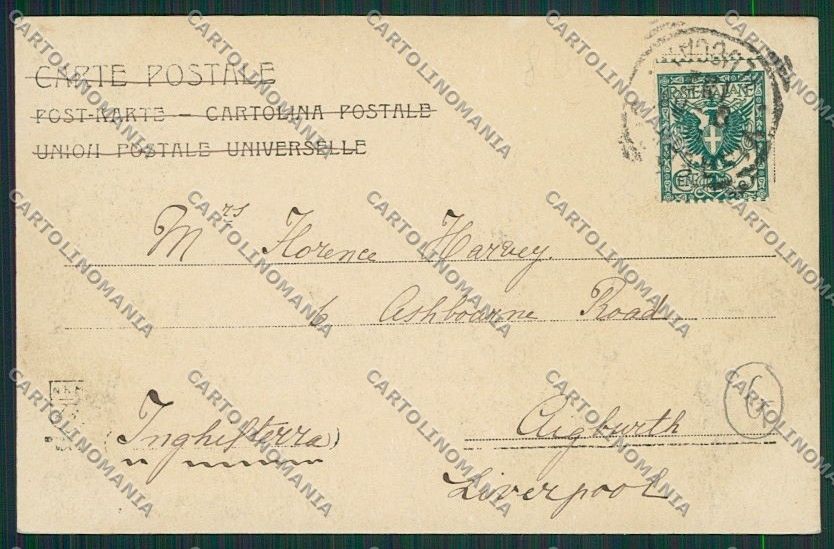 CARTE POSTALE
POST-KARTE – CARTOLINA POSTALE
UNION POSTALE UNIVERSELLE
LUCCA
POSTE ITALIANE
Mrs Florence Harvey.
6 Ashbourne Road
Aigburth
Liverpool
(Inghilterra)
6
CARTOLINOMANIA